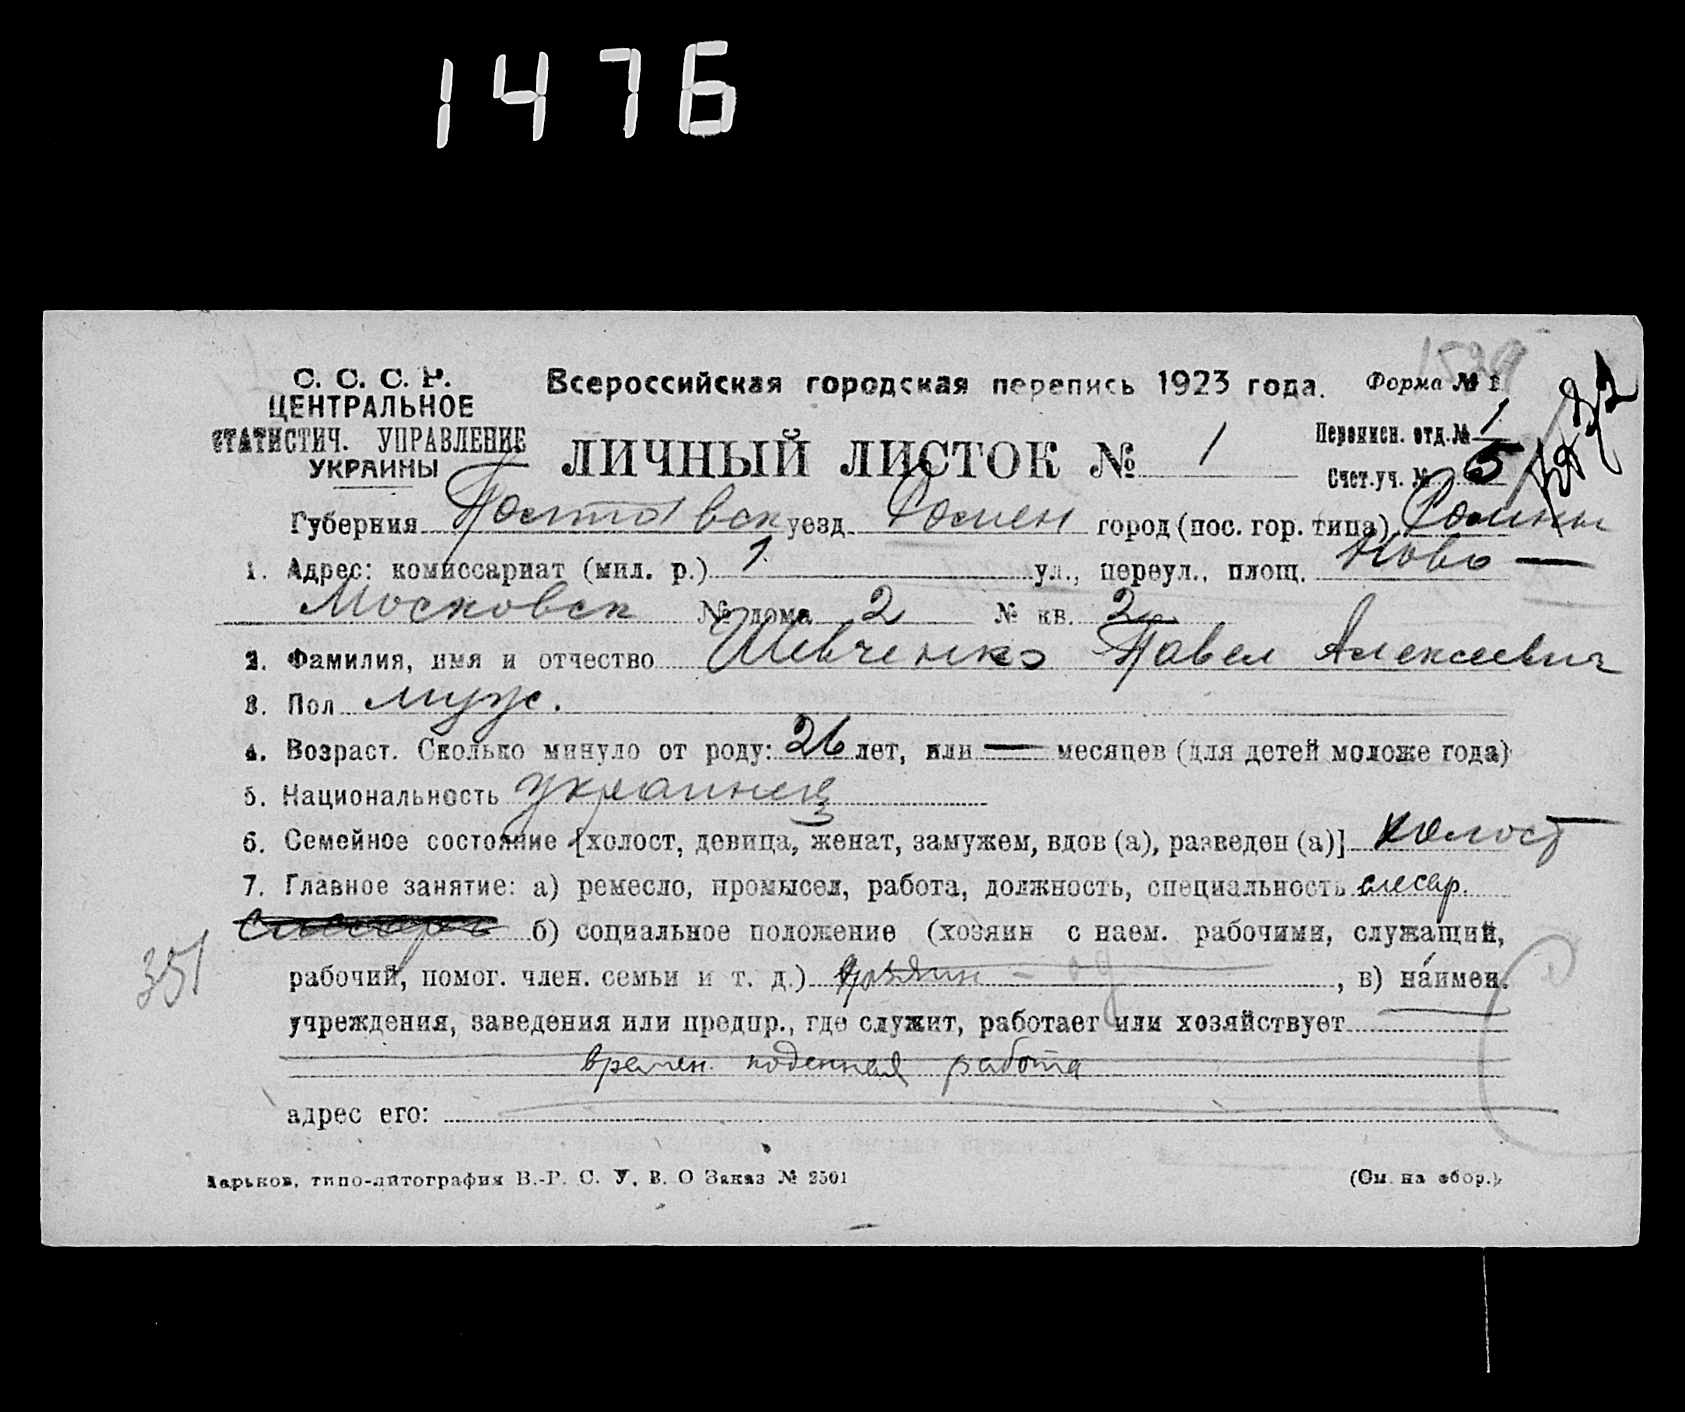 1476
1529
С. С. С. Р.
ЦЕНТРАЛЬНОЕ
СТАТИСТИЧ. УПРАВЛЕНИЕ
УКРАИНЫ
Всероссийская городская перепись 1923 года.
Форма № 1
ЛИЧНЫЙ ЛИСТОК № 1
Переписн. отд. № 1
Счет. уч. № 5
Губерния Полтавск уезд Ромен город (пос. гор. типа) Ромны
1. Адрес: комиссариат (мил. р.) 1 ул., переул., площ. Ново —
Московск № дома 2 № кв. 2
2. Фамилия, имя и отчество Шевченко Павел Алексеевич
3. Пол муж.
4. Возраст. Сколько минуло от роду: 26 лет, или — месяцев (для детей моложе года)
5. Национальность украинец
6. Семейное состояние [холост, девица, женат, замужем, вдов (а), разведен (а)] холост
7. Главное занятие: а) ремесло, промысел, работа, должность, специальность слесар.
б) социальное положение (хозяин с наем. рабочими, служащий,
351
рабочий, помог. член. семьи и т. д.) хозяин - од , в) наимен.
учреждения, заведения или предпр., где служит, работает или хозяйствует
времен. поденная работа
адрес его:
Харьков, типо-литография В.-Р. С. У. В. О Заказ № 2501
(См. на обор.)